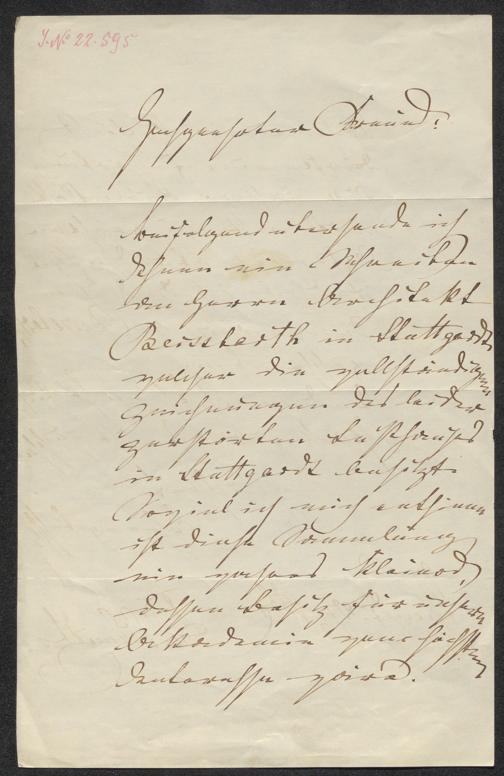 J. No 22.595
Hochgeehrter Freund!
Beifolgend übersende ich
Ihnen ein Schreiben
des Herrn Architekt
Beisbarth in Stuttgardt,
welcher die vollständigen
Zeichnungen des leider
zerstörten Lusthauses
in Stuttgardt besitzt.
Soviel ich mich entsinne
ist diese Sammlung
ein wahres Kleinod,
dessen Besitz für unsere
Akademie vom höchsten
Interesse wäre.